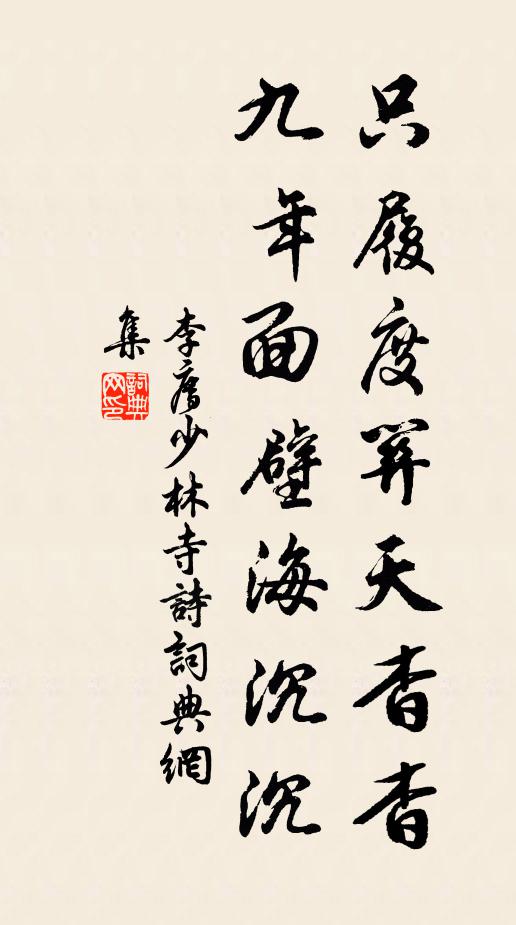 只履度關天杳杳
九年面壁海沉沉
李廌少林寺詩詞典網
集
詞典
网印